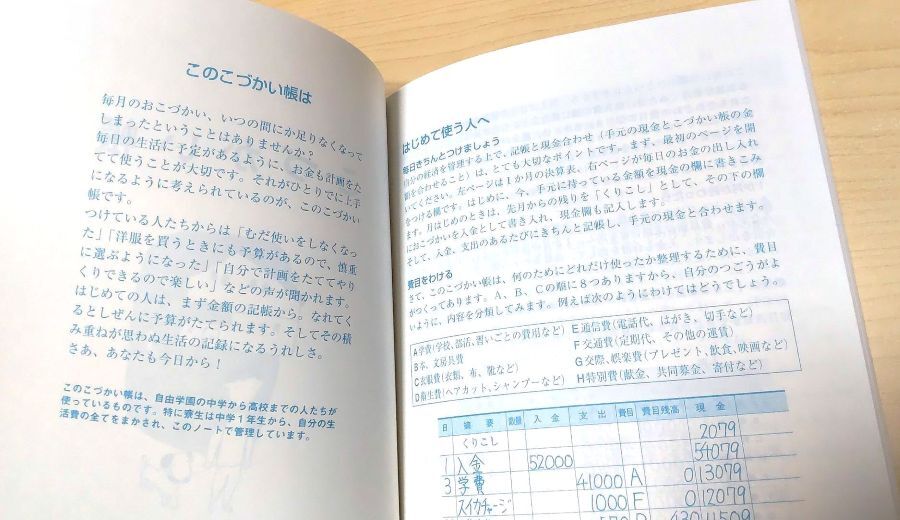 このこづかい帳は
毎月のおこづかい、いつの間にか足りなくなって
しまったということはありませんか？
毎日の生活に予定があるように、お金も計画をた
てて使うことが大切です。それがひとりでに上手
になるように考えられているのが、このこづかい
帳です。
つけている人たちからは「むだ使いをしなくなっ
た」「洋服を買うときにも予算があるので、慎重
に選ぶようになった」「自分で計画をたててやり
くりできるので楽しい」などの声が聞かれます。
はじめての人は、まず金額の記帳から。なれてく
るとしぜんに予算がたてられます。そしてその積
み重ねが思わぬ生活の記録になるうれしさ。
さあ、あなたも今日から！
このこづかい帳は、自由学園の中学から高校までの人たちが
使っているものです。特に寮生は中学1年生から、自分の生
活費の全てをまかされ、このノートで管理しています。
はじめて使う人へ
毎日きちんとつけましょう
自分の経済を管理する上で、記帳と現金合わせ（手元の現金とこづかい帳の金
額を合わせること）は、とても大切なポイントです。まず、最初のページを開
いてください。左ページは1か月の決算表、右ページが毎日のお金の出し入れ
をつける欄です。はじめに、今、手元に持っている金額を現金の欄に書きこみ
ます。月はじめのときは、先月からの残りを「くりこし」として、その下の欄
におこづかいを入金として書き入れ、現金欄も記入します。
そして、入金、支出のあるたびにきちんと記帳し、手元の現金と合わせます。
費目をわける
さて、このこづかい帳は、何のためにどれだけ使ったか整理するために、費目
がつくってあります。A、B、Cの順に8つありますから、自分のつごうがよ
いように、内容を分類してみます。例えば次のようにわけてはどうでしょう。
A学費(学校、部活、習いごとの費用など) E通信費(電話代、はがき、切手など)
B本、文房具費 F交通費(定期代、その他の運賃)
C衣服費(衣類、布、靴など) G交際、娯楽費(プレゼント、飲食、映画など)
D衛生費(ヘアカット、シャンプーなど) H特別費(献金、共同募金、寄付など)
日 摘要 数量 入金 支出 費目 費目残高 現金
くりこし 2079
1 入金 52000 54079
3 学費 41000 A 0 13079
スイカチャージ 1000 F 0 12079
570 D 430 11509